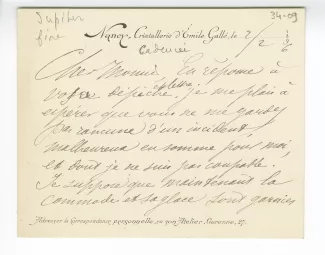 Jupiter
fine
34-09
Nancy, Cristallerie d'Emile Gallé, le 2/2
Cher Monsieur, En réponse à
votre dépêche & lettre, je me plais à
espérer que vous ne me gardez
pas rancune d'un incident,
malheureux en somme pour moi,
et dont je ne suis pas coupable.
Je suppose que maintenant la
commode et sa glace sont garnies
Adresser la Correspondance personnelle, en son Atelier, Garenne, 27.